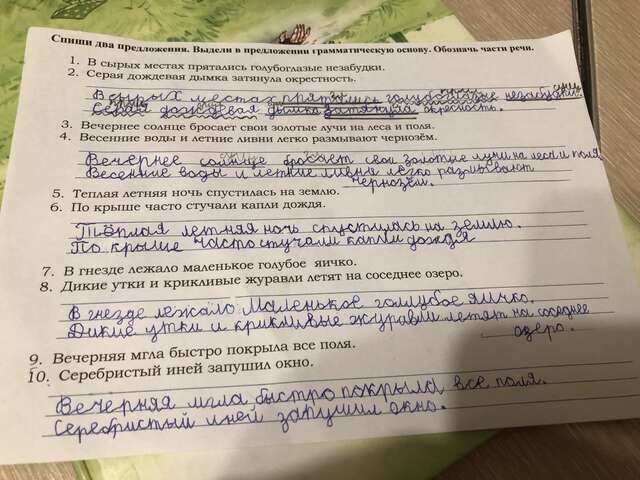 Спиши два предложения. Выдели в предложении грамматическую основу. Обозначь части речи.
1. В сырых местах прятались голубоглазые незабудки.
2. Серая дождевая дымка затянула окрестность.
В сырых местах прятались голубоглазые незабудки.
Серая дождевая дымка затянула окресность.
3. Вечернее солнце бросает свои золотые лучи на леса и поля.
4. Весенние воды и летние ливни легко размывают чернозём.
Вечернее солнце бросает свои золотые лучи на леса и поля
Весенние воды и летние ливни легко размывают
чернозём.
5. Теплая летняя ночь спустилась на землю.
6. По крыше часто стучали капли дождя.
Тёплая летняя ночь спустилась на землю.
По крыше часто стучали капли дождя
7. В гнезде лежало маленькое голубое яичко.
8. Дикие утки и крикливые журавли летят на соседнее озеро.
В гнезде лежало маленькое голубое яичко.
Дикие утки и крикливые журавли летят на соседнее
озеро.
9. Вечерняя мгла быстро покрыла все поля.
10. Серебристый иней запушил окно.
Вечерняя мгла быстро покрыла все поля.
Серебристый иней запушил окно.